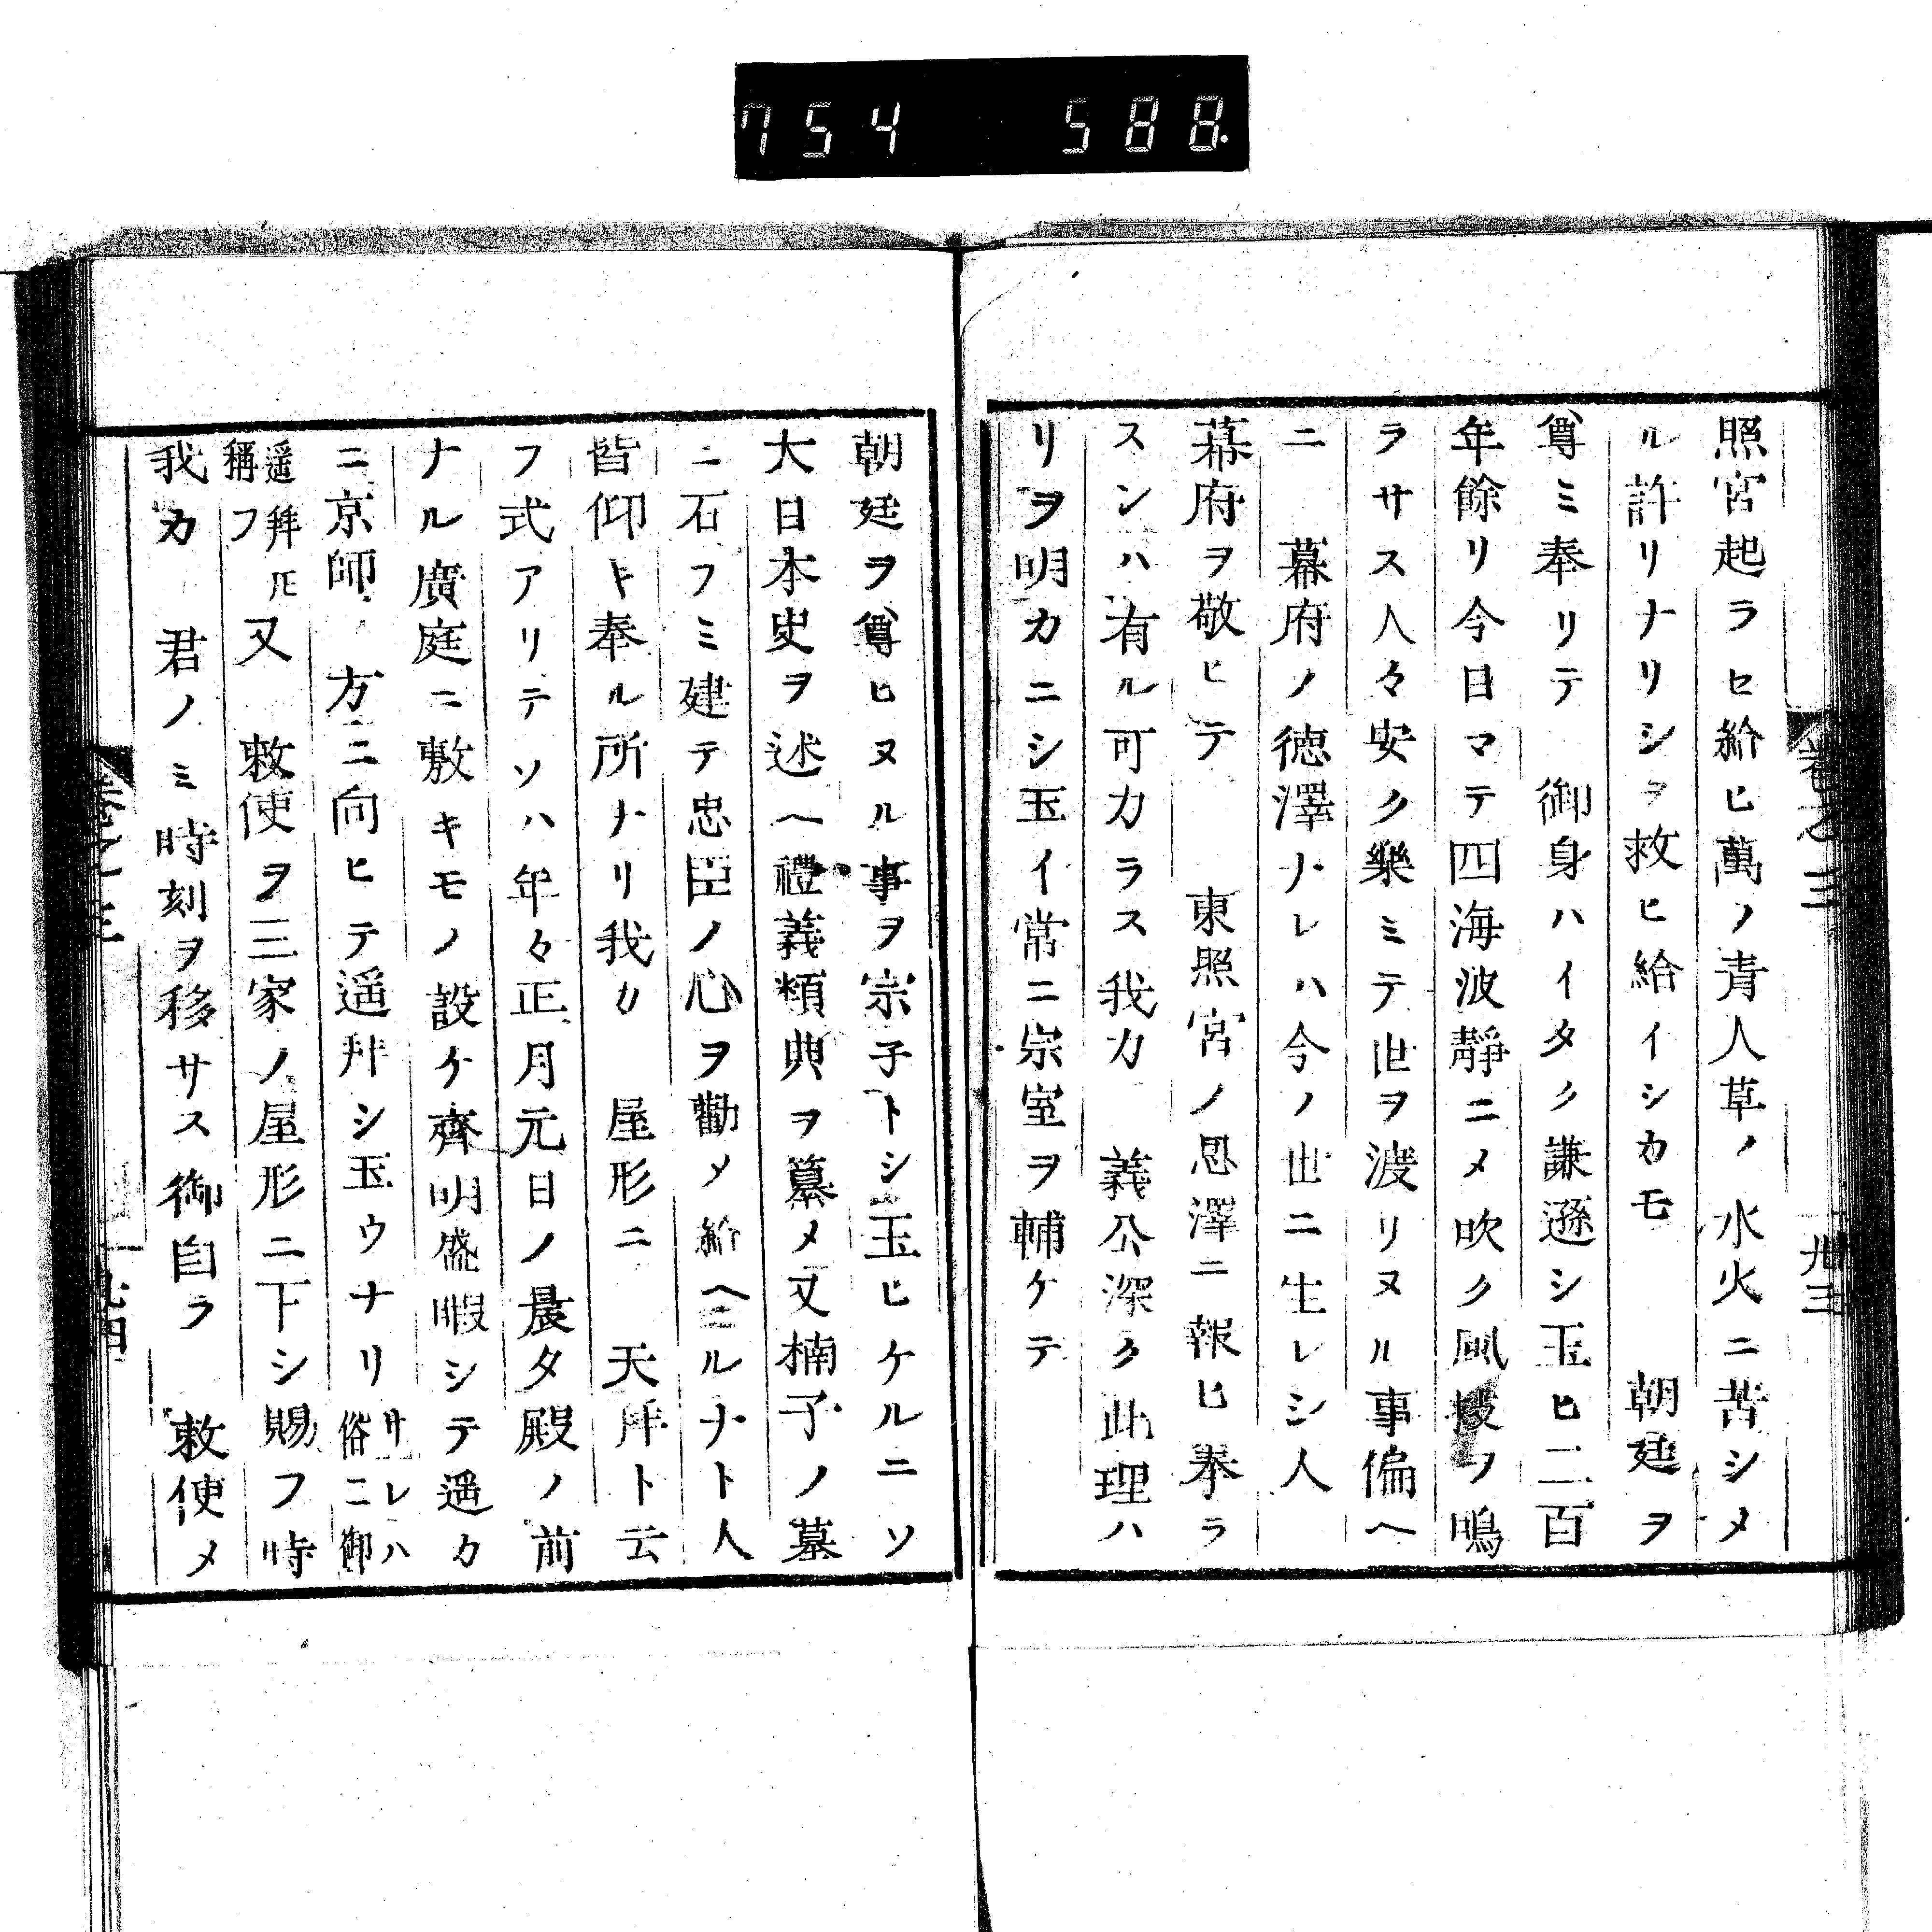 754 588.
照宮起ラセ給ヒ萬ノ青人草ノ水火ニ苦シメ
ル許リナリシヲ救ヒ給イシカモ　朝廷ヲ
尊ミ奉リテ　御身ハイタク謙遜シ玉ヒ二百
年餘リ今日マテ四海波靜ニメ吹ク風枝ヲ鳴
ラサス人々安ク樂ミテ世ヲ渡リヌル事偏ヘ
ニ　幕府ノ德澤ナレハ今ノ世ニ生レシ人
幕府ヲ敬ヒテ　東照宮ノ恩澤ニ報ヒ奉ラ
スンハ有ル可カラス我カ　義公深ク此理ハ
リヲ明カニシ玉イ常ニ宗室ヲ輔ケテ
朝廷ヲ尊ヒヌル事ヲ宗子トシ玉ヒケルニソ
大日本史ヲ述ヘ禮義類典ヲ纂メ又楠子ノ墓
ニ石フミ建テ忠臣ノ心ヲ勸メ給ヘルナト人
皆仰キ奉ル所ナリ我カ　屋形ニ　天拜ト云
フ式アリテソハ年々正月元日ノ晨タ殿ノ前
ナル廣庭ニ敷キモノ設ケ齊明盛暇シテ遥カ
ニ京師ノ方ニ向ヒテ遥拜シ玉ウナリ
サレハ
俗ニ御
遥拜𪜈
稱フ
又　敕使ヲ三家ノ屋形ニ下シ賜フ時
我カ　君ノミ時刻ヲ移サス御自ラ　敕使メ
卷之三
卅三
卷之三